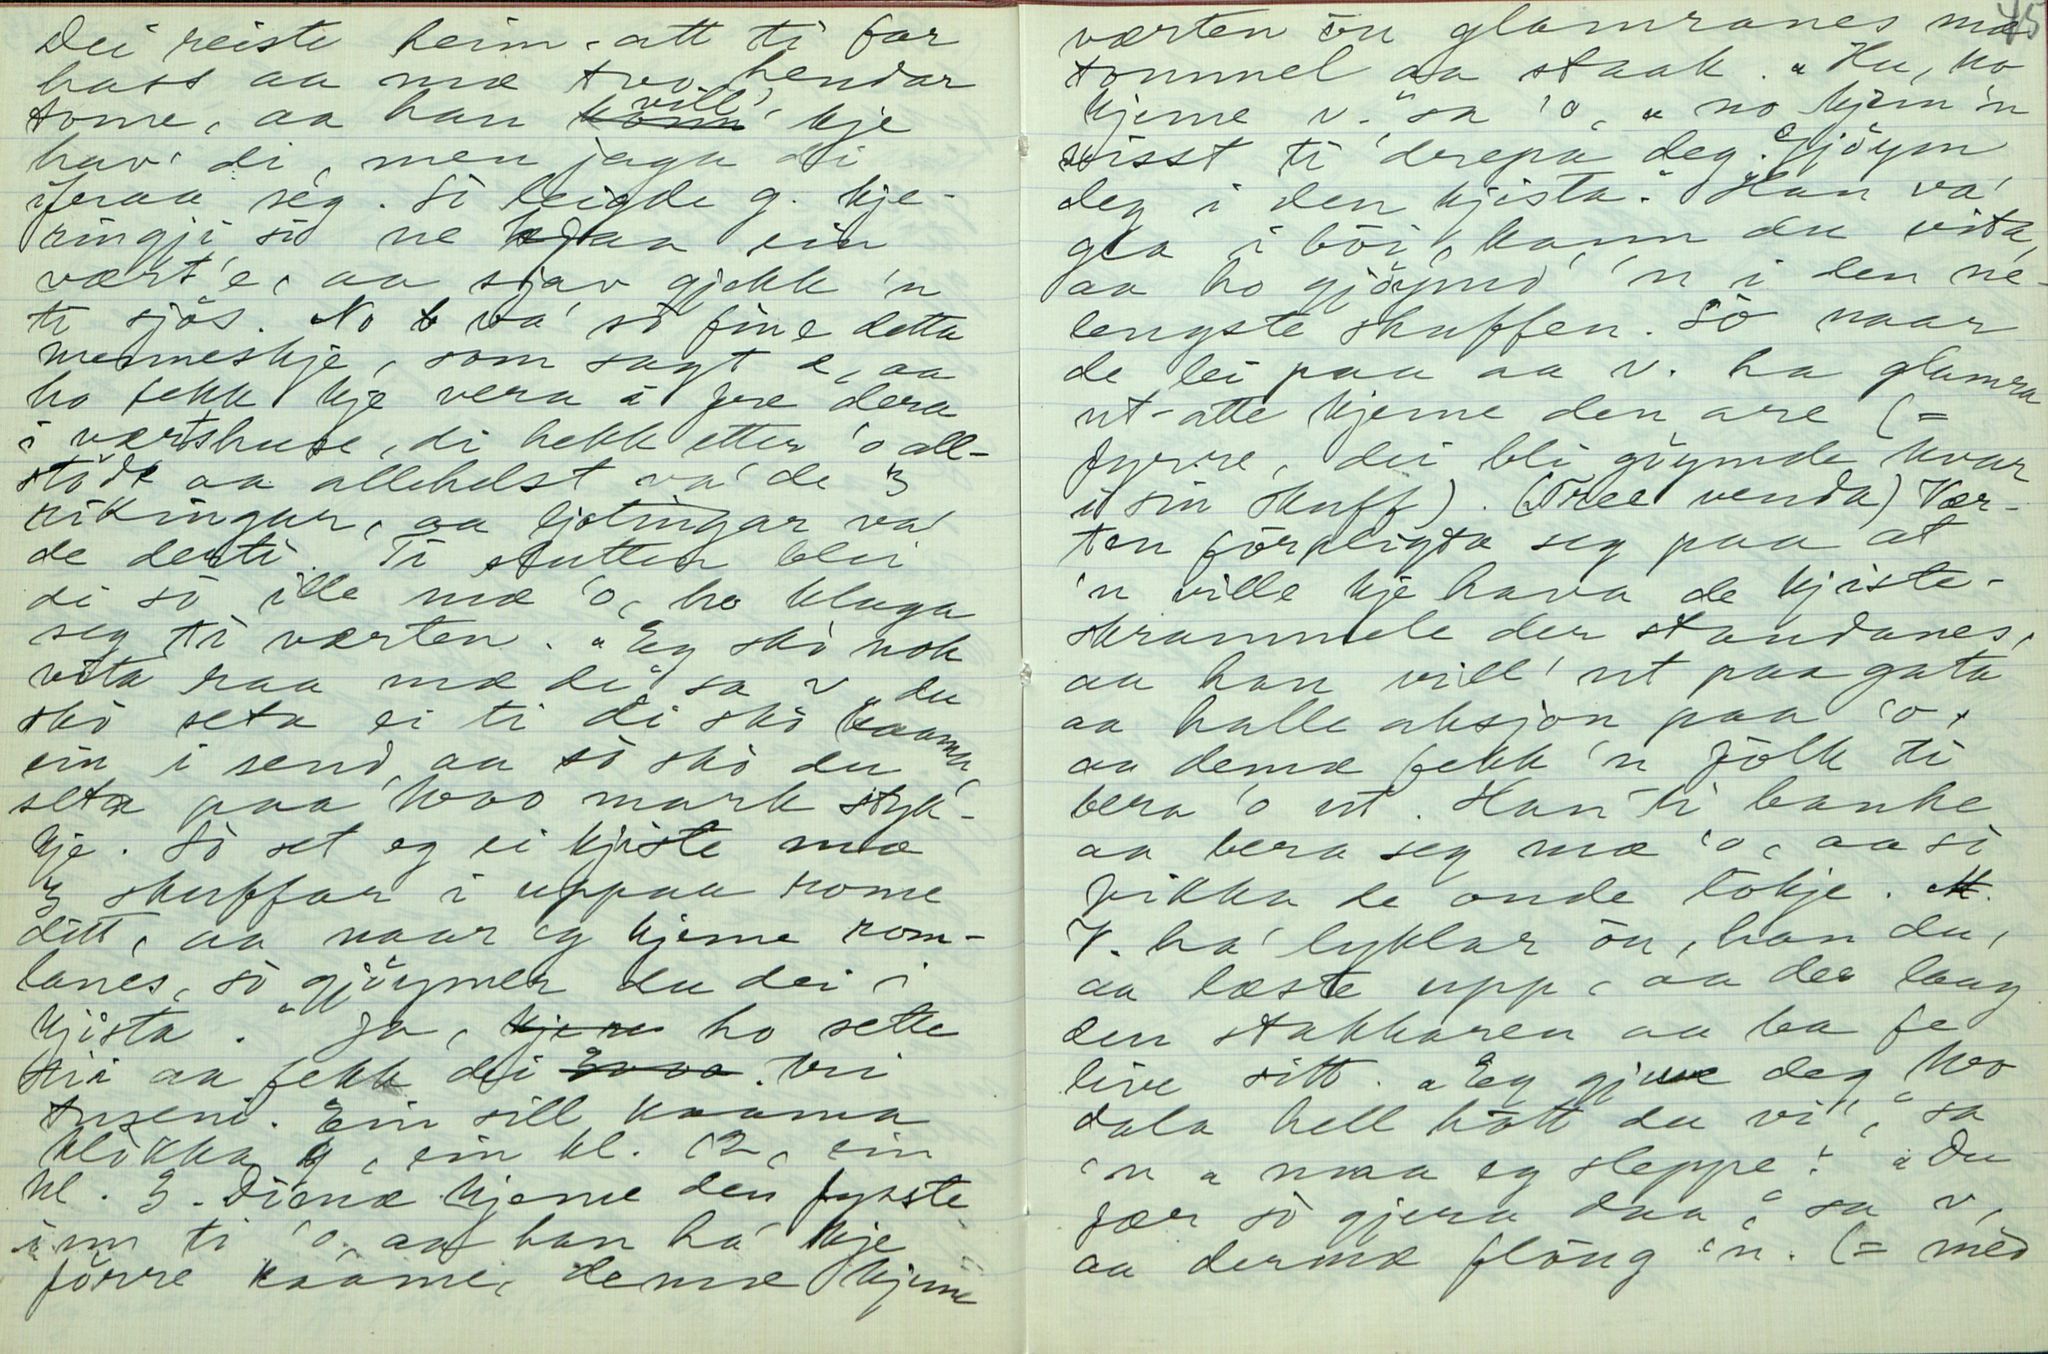 Dei reiste heim-att ti far
hass aa mæ tvo hendar
tome, aa han komm vill' kje
hav' di, men jaga di
ifraa seg. So leigde g. kje-
ringji si ne hjaa ein
vært'e, aa sjav gjekk 'n
ti sjös. No va' so fine detta
menneskje, som sagt e, aa
ho fekk kje vera i fre dera
i værtshuse, di hekk etter 'o all-
stödt aa allehelst va' de 3
rikingar, aa ljotingar va'
de derti. Ti slutten blei
di so ille mæ 'o, ho klaga
seg ti værten. "Eg sko nok
vita raa mæ di" sa v "du
sko seta ei ti di sko kaama,
ein i send, aa so sko du
seta paa tvoo mark styk-
kje. So set eg ei kjiste mæ
3 skuffar i uppaa rome
ditt, aa naar eg kjeme rom-
lanes, so gjöymer du dei i
kjista." Ja, kjem ho sette
tii aa fekk dei 2000 tvi
tuseni. Ein sill kaama
klokka 9, ein kl. 12, ein
kl. 3. Dimæ kjeme den fysste
inn ti 'o, aa han ha' kje
förre kaame, demæ kjeme
45
værten ou glamranes mæ
tommel aa staak. "Hu, no
kjeme v." sa 'o, "no kjem 'n
visst ti drepa deg. Gjöym
deg i den kjista." Han va'
gla i boi, kann du vita,
aa ho gjöymd' 'n i den ne-
lengste skuffen. So naar
de lei paa aa v. ha glamra
ut-atte kjeme den are (=
fyrre, dei bli göymde kvar
i sin skuff). (Tree venda) Vær-
ten forpligta seg paa at
'n ville kje hava de kjiste-
skrammele der standanes,
aa han vill' ut paa gata
aa halle aksjon paa 'o,
aa demæ fekk 'n folk ti
bera 'o ut. Han ti banke
aa bera seg mæ 'o, aa so
pikka de onde tokje.
V. ha' lyklar ou, han du,
aa læste upp, aa der laag
den stakkaren aa ba fe
live sitt. "Eg gjeve deg tvo
dala hell hott du vi'," sa
'n "maa eg sleppe." "Du
fær so gjera daa," sa v,
aa dermæ flaug 'n. (= med